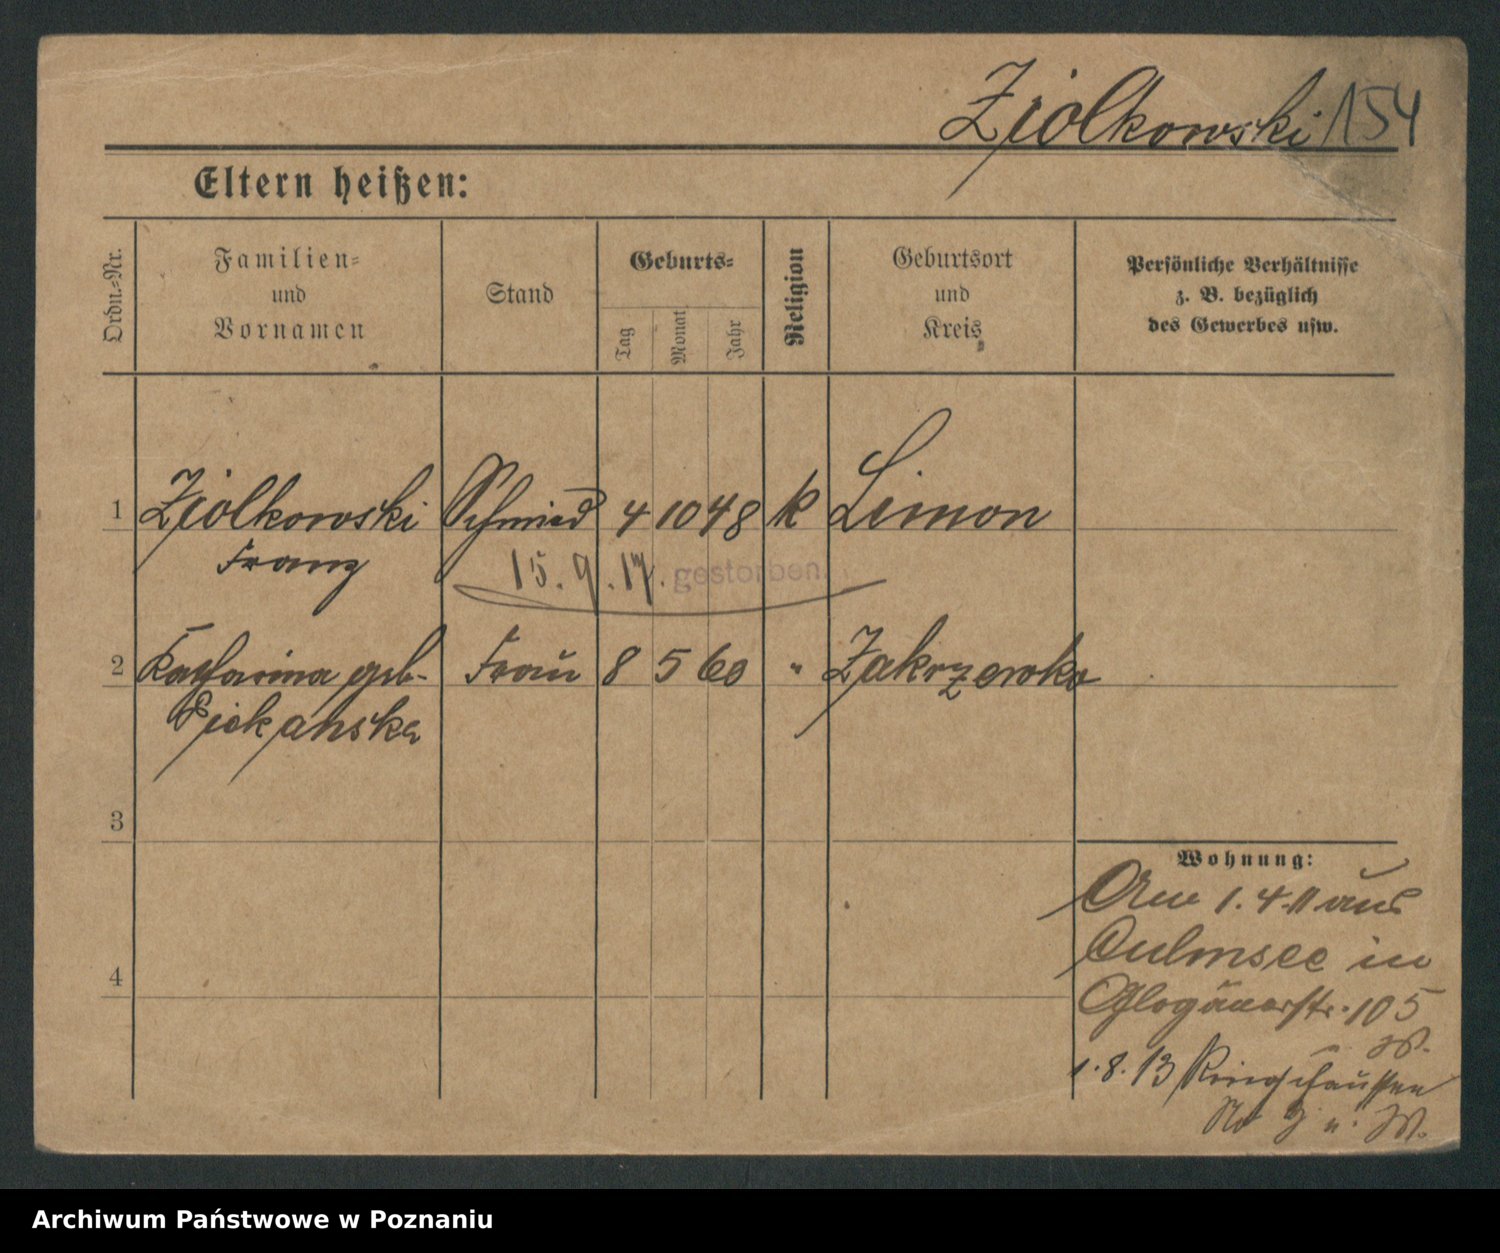 Ziolkowski 154
Eltern heißen:
Ordn.=Nr.
Familien=
und
Vornamen
Stand
Geburts=
Tag
Monat
Jahr
Religion
Geburtsort
und
Kreis
Persönliche Verhältnisse
z. B. bezüglich
des Gewerbes usw.
1 Ziolkowski Schmied 4 10 48 k Limon
Franz
15. 9. 17. gestorben.
2 Katharina geb. Frau 8 5 60 " Zakrzewko
Piekanska
3
Wohnung:
Am 1.4.11 aus
Culmsee in
4
Glogauerstr. 105
W.
1.8.13
No W.
Archiwum Państwowe w Poznaniu